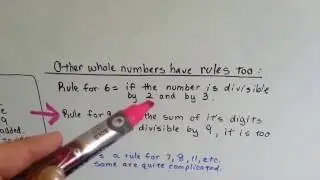 Other whole numbers have rules too:
Rule for 6 = if the number is divisible
by 2 and by 3.
Rule for the sum of it's digits
divisible by 9, it is too
is a rule for 7, 8, 11, etc.
Some are quite complicated.
added.